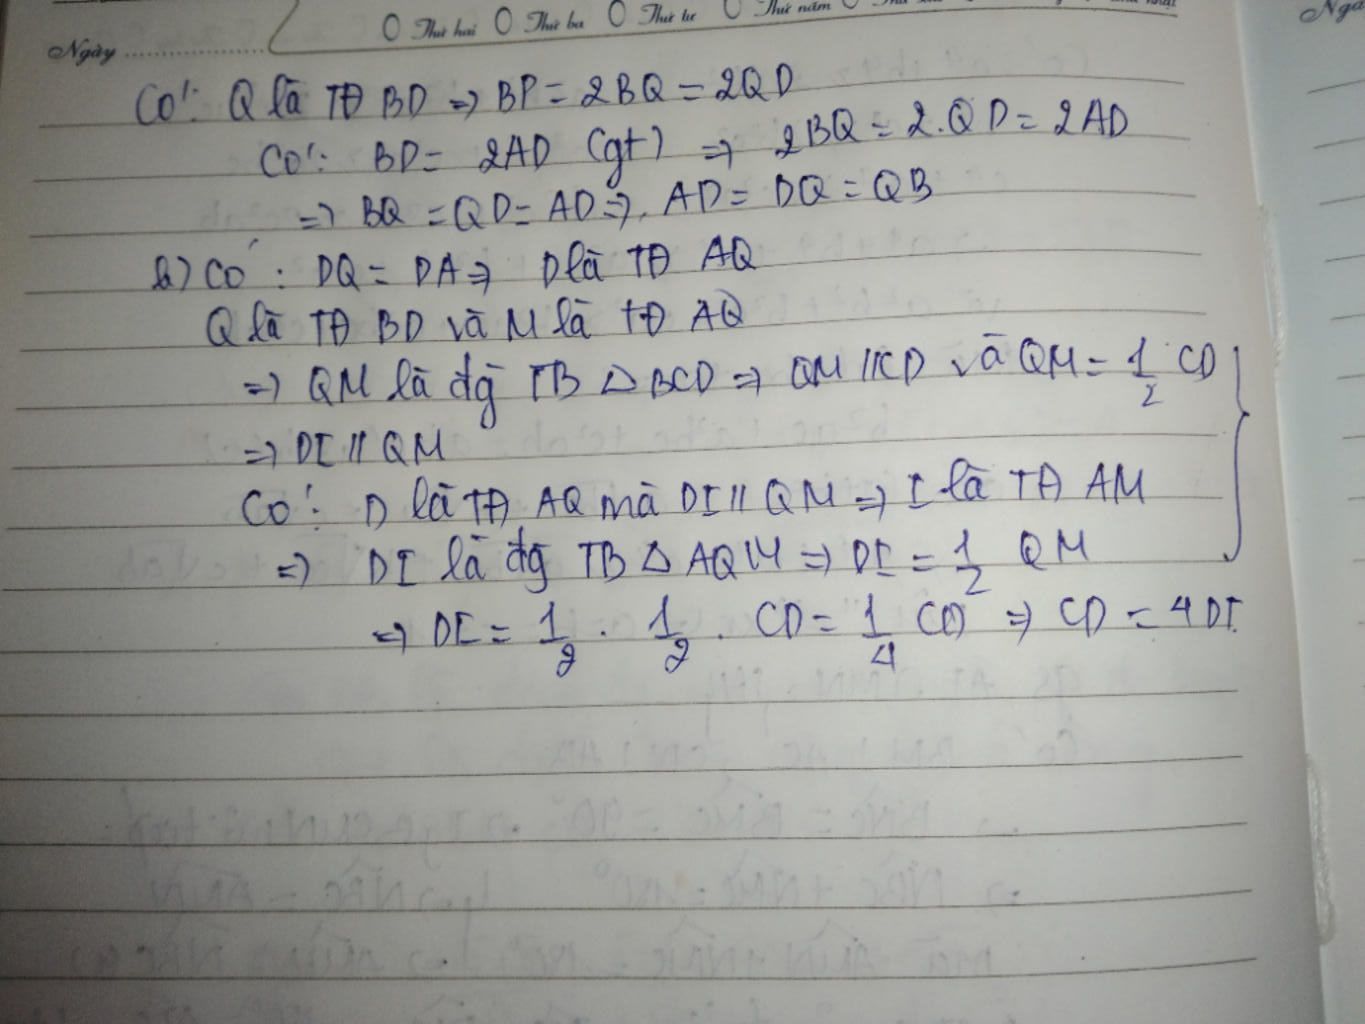 Ngày ............ Thứ hai Thứ ba Thứ tư Thứ năm
Có: Q là TĐ BD => BD = 2BQ = 2QD
Có: BD = 2AD (gt) => 2BQ = 2.QD = 2AD
=> BQ = QD = AD => AD = DQ = QB
b) Có: DQ = DA => D là TĐ AQ
Q là TĐ BD và M là TĐ AQ
=> QM là đg TB △ BCD => QM // CD và QM = 1/2 CD
=> DI // QM
Có: D là TĐ AQ mà DI // QM => I là TĐ AM
=> DI là đg TB △ AQM => DI = 1/2 QM
=> DI = 1/2 . 1/2 . CD = 1/4 CD => CD = 4DI